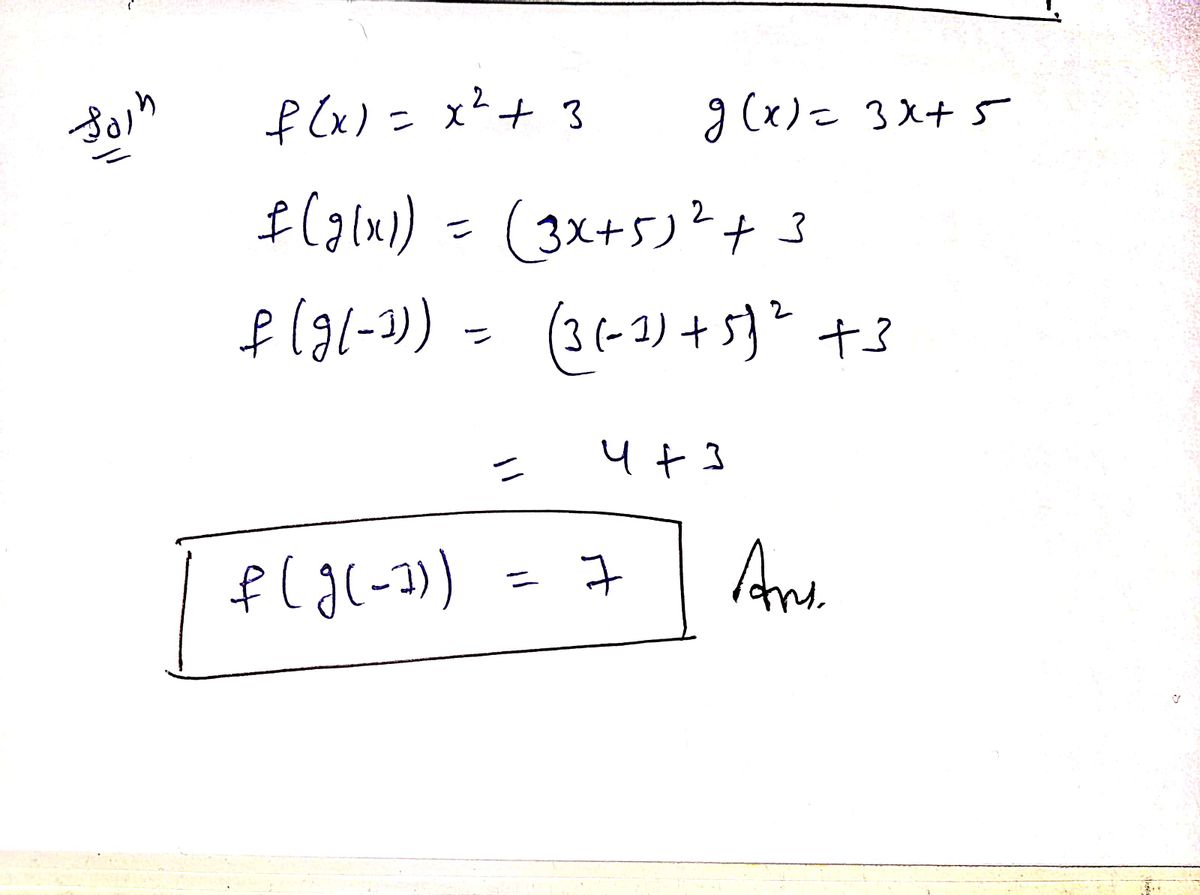 Solⁿ f(x) = x² + 3 g(x) = 3x + 5
f(g(x)) = (3x+5)² + 3
f(g(-1)) = (3(-1) + 5)² + 3
= 4 + 3
f(g(-1)) = 7 Ans.